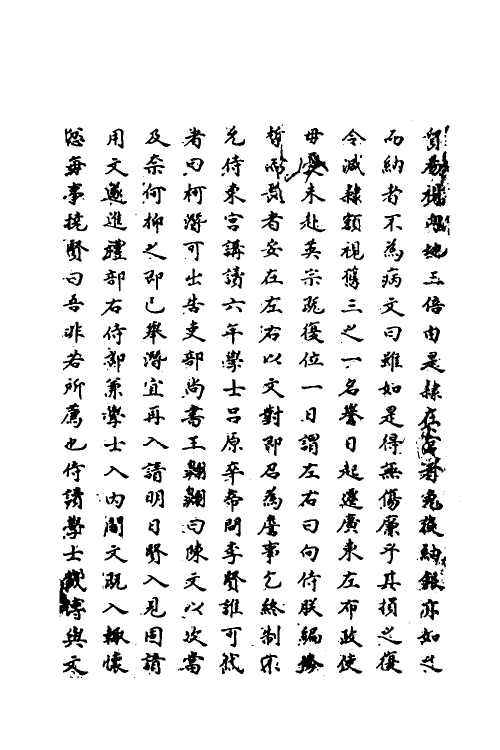 貿易視他地三倍由是隸在官者免役納銀亦如之
而納者不為病文曰雖如是得無傷廉乎其損之復
令減隸額視舊三之一名譽日起遷廣東左布政使
母憂未赴英宗既復位一日謂左右曰向侍朕編修
晳而長者安在左右以文對即召為詹事乞終制不
允侍東宮講讀六年學士呂原卒帝問李賢誰可代
者曰柯潛可出告吏部尚書王翺翺曰陳文以次當
及奈何抑之即已舉潛宜再入請明日賢入見因請
用文遂進禮部右侍郎兼學士入內閣文既入輒懷
怨每事撓賢曰吾非若所薦也侍讀學士錢溥與文